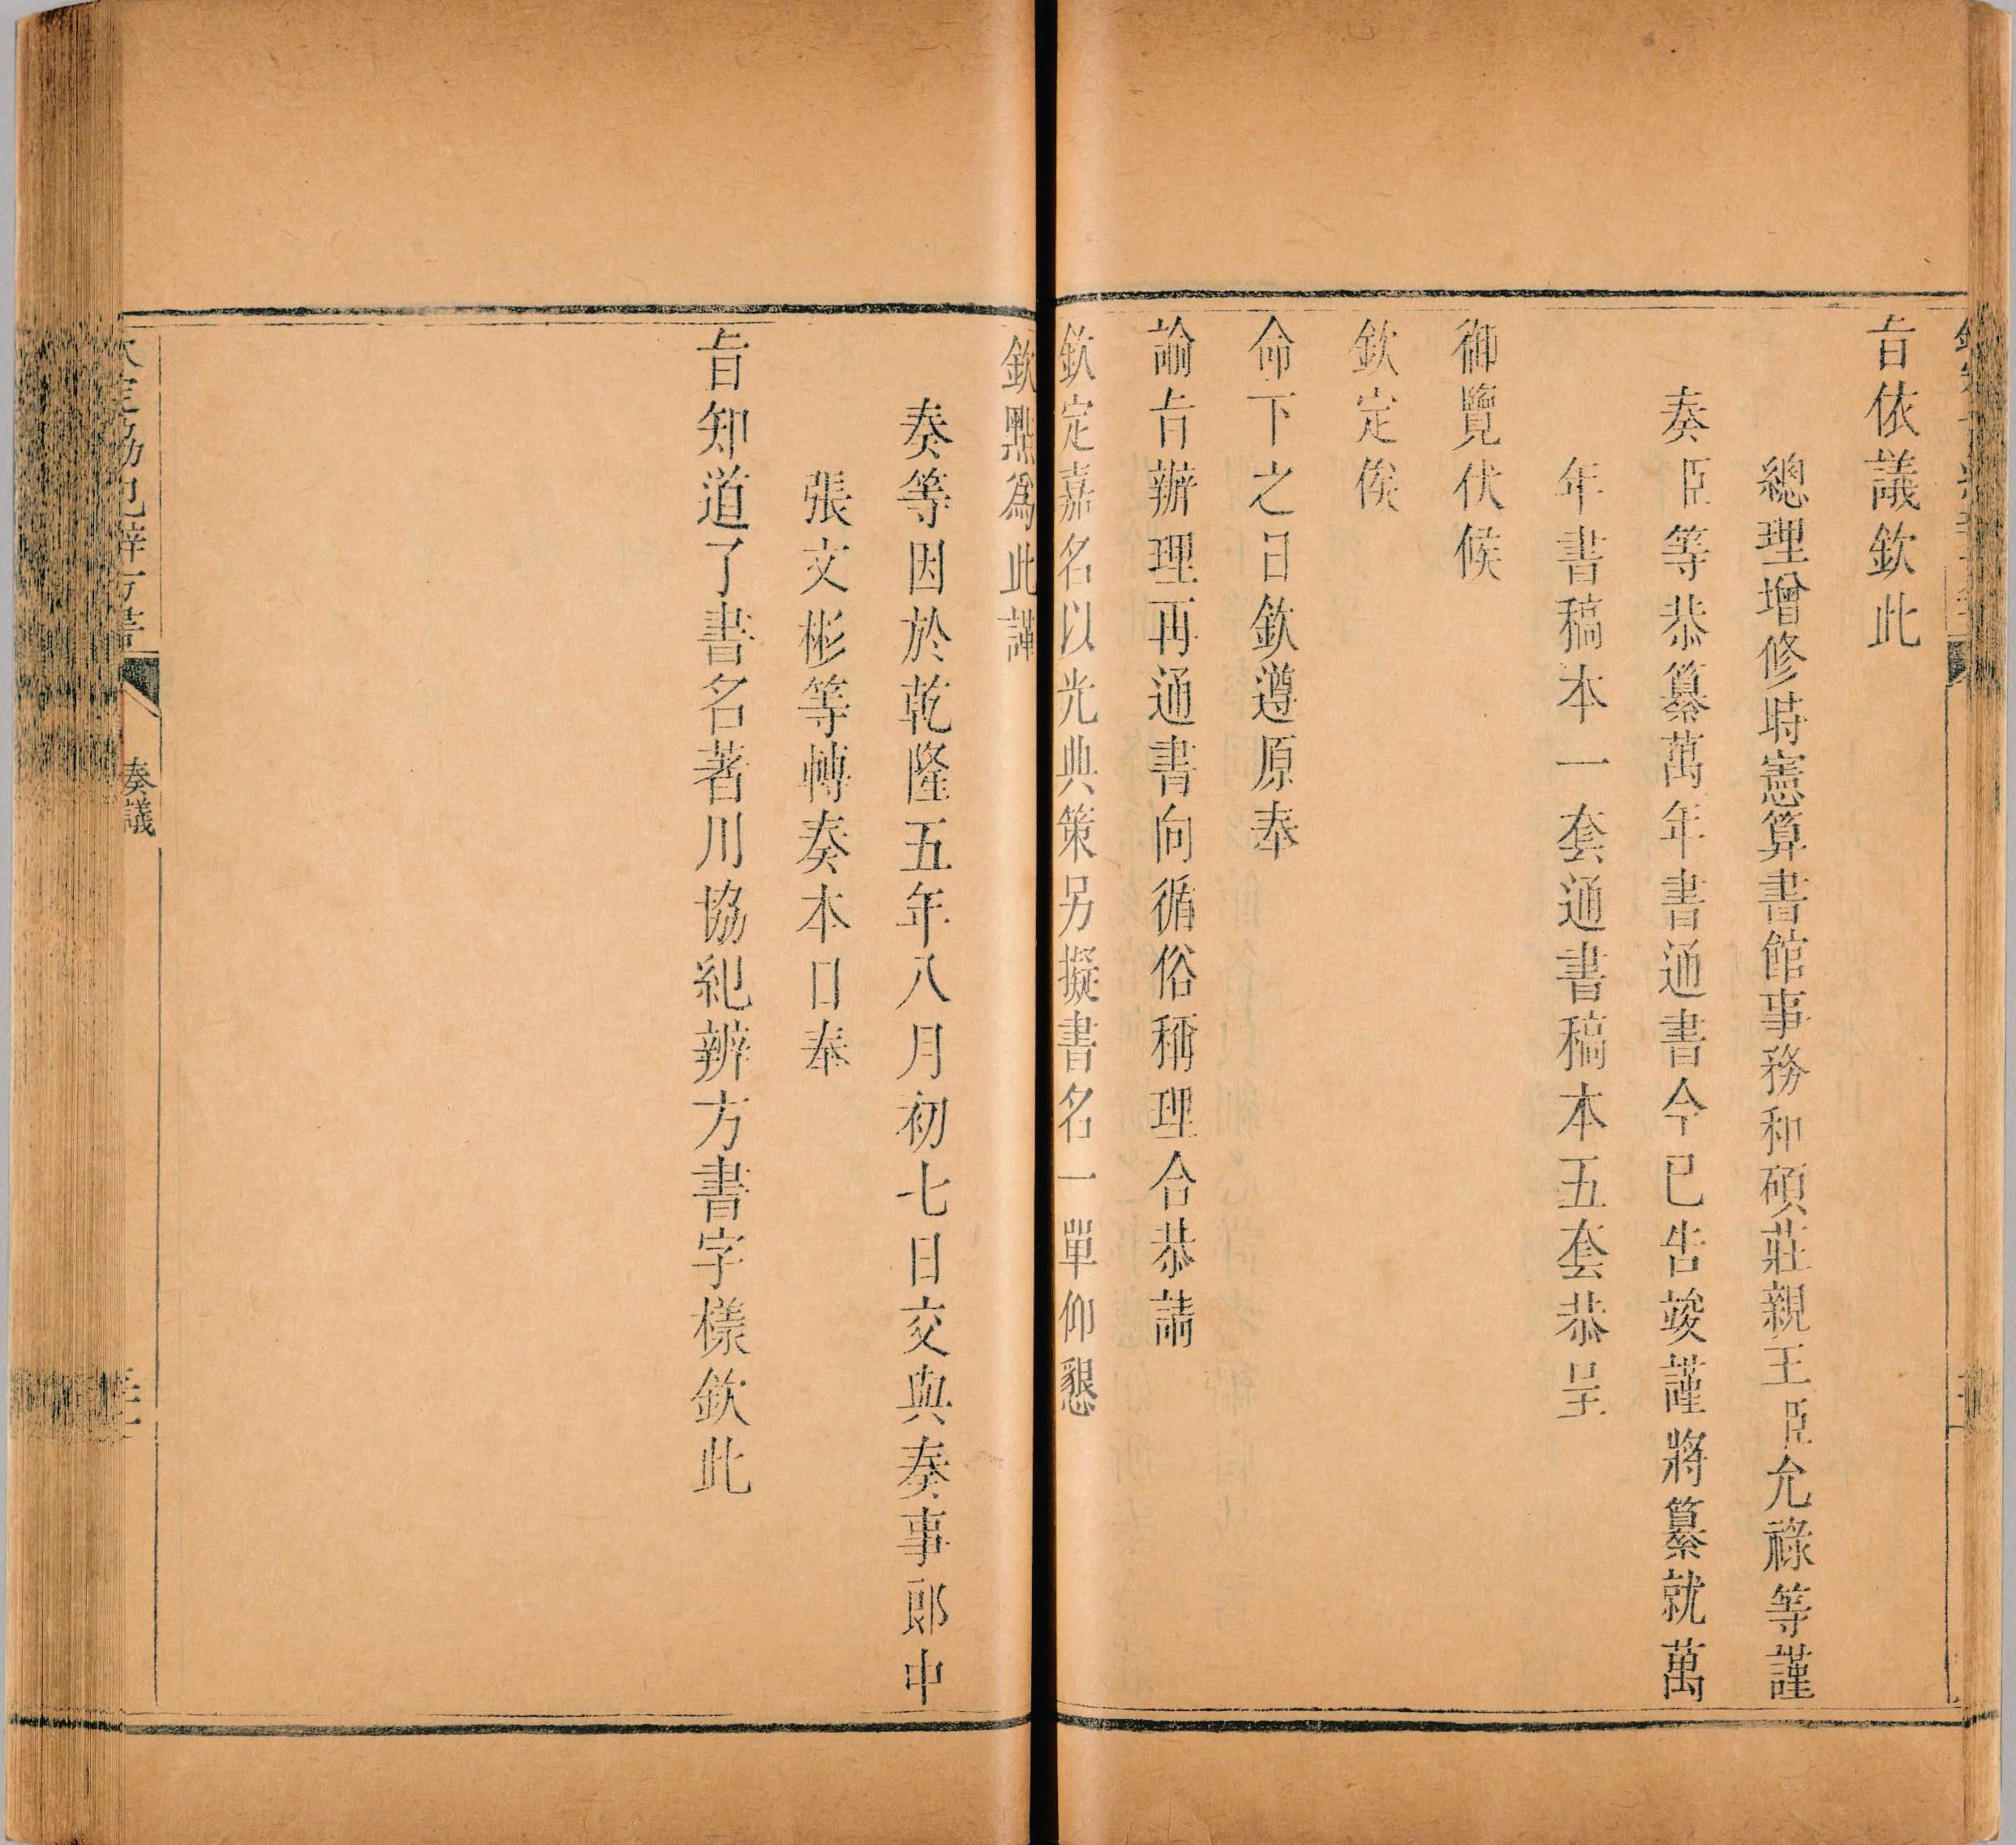 旨依議欽此
總理增修時憲算書館事務和碩莊親王臣允祿等謹
奏臣等恭纂萬年書通書今已告竣謹將纂就萬
年書稿本一套通書稿本五套恭呈
御覽伏候
欽定俟
命下之日欽遵原奉
諭旨辦理再通書向循俗稱理合恭請
欽定嘉名以光典策另擬書名一單仰懇
欽點爲此謹
奏等因於乾隆五年八月初七日交與奏事郎中
張文彬等轉奏本日奉
旨知道了書名著用協紀辨方書字樣欽此
奏議